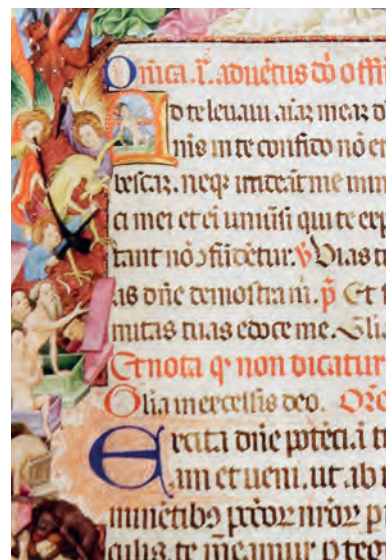 Dnica .i. aduetus do offi
Ad te leuaui aiaz meaz d
nis in te confido no er
bescaz. neqz irrideat me inim
ci mei et ei uniusi qui te exp
tant no ofudetur. v Vias t
as dne demostra m. p Et s
mitas tuas edoce me. Glia
Et nota q non dicatur
Glia in excelsis deo. Orō
Excita dne poteci.a t
am et ueni. ut ab i
minetibs pccor nror p
culis te meamur p teg